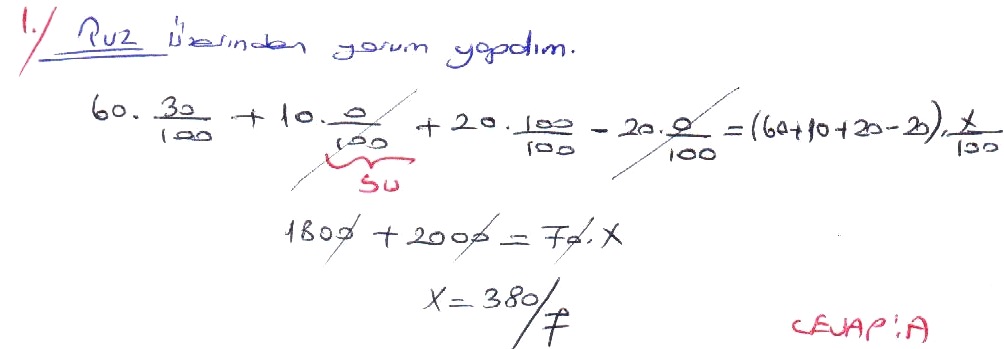 1./ Tuz üzerinden yorum yapdım.
60. 30/100 + 10. 0/100 + 20. 100/100 - 20. 0/100 = (60+10+20-20). x/100
su
1800 + 2000 = 70. x
x = 380/7
CEVAP: A